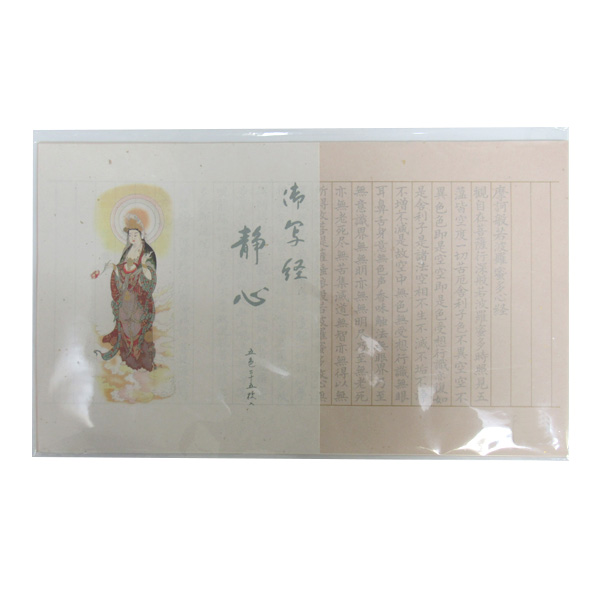 摩訶般若波羅蜜多心経
観自在菩薩行深般若波羅蜜多時照見五
蘊皆空度一切苦厄舎利子色不異空空不
異色色即是空空即是色受想行識亦復如
是舎利子是諸法空相不生不滅不垢不浄
不増不減是故空中無色無受想行識無眼
耳鼻舌身意無色声香味触法無眼界乃至
無意識界無無明亦無無明尽乃至無老死
亦無老死尽無苦集滅道無智亦無得以無
御写経
静心
五色二十五枚入